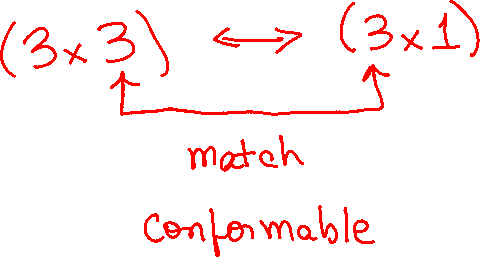 (3×3) ⟷ (3×1)
match
conformable